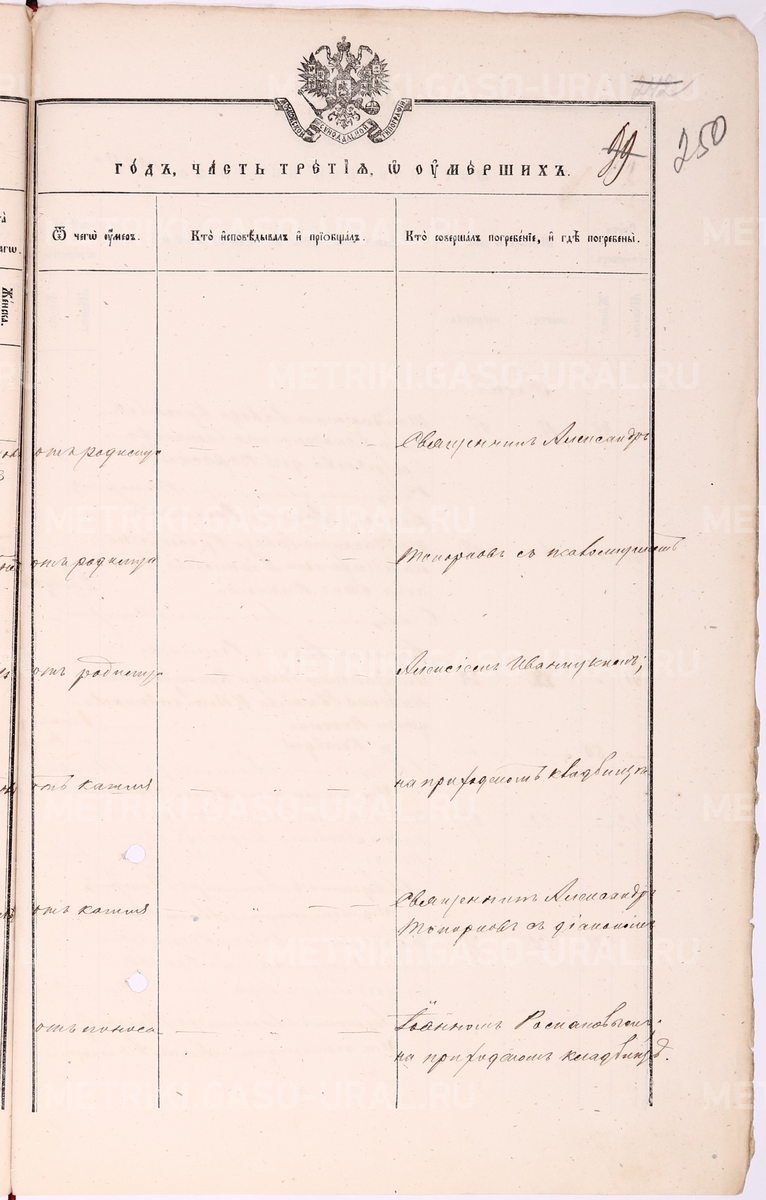 МОСКОВСКОЙ СѴНОДАЛЬНОЙ ТИПОГРАФІИ
99
250
ГОДЪ, ЧАСТЬ ТРЕТІЯ, Ѡ ОУМЕРШИХЪ.
Ѿ чегѡ оумеръ.
Кто исповѣдывалъ и пріобщалъ.
Кто совершалъ погребеніе, и гдѣ погребены.
Женска.
отъ родимца
Священникъ Александръ
отъ родимца
Топорковъ съ псаломщикомъ
отъ родимца
Алексіемъ
отъ кашля
на приходскомъ кладбищѣ
отъ кашля
Священникъ Александръ
Топорковъ съ діакономъ
отъ поноса
Іоанномъ
на приходскомъ кладбищѣ.
METRIKI.GASO-URAL.RU